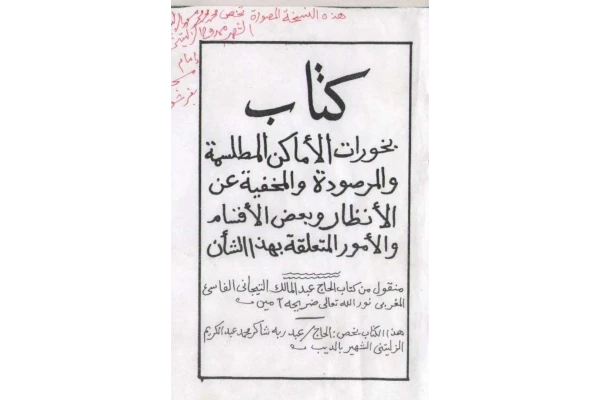 هذه النسخة المصورة تخص محمد
الشهير
إمام
كتاب
بخورات الأماكن المطلسمة
والمرصودة والمخفية عن
الأنظار وبعض الأقسام
والأمور المتعلقة بهذا الشأن
منقول من كتاب الحاج عبد المالك التيجاني الفاسي
المغربي نور الله تعالى ضريحه آمين
هذا الكتاب يخص: الحاج/ عبد ربه شاكر محمد عبد الكريم
الزليتني الشهير بالديب